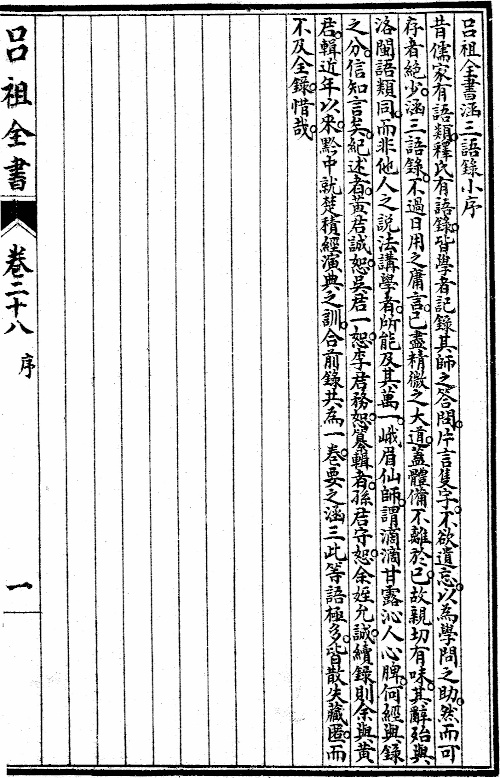 呂祖全書涵三語錄小序
昔儒家有語類釋氏有語錄皆學者記錄其師之答問片言隻字不欲遺忘以為學問之助然而可
存者絕少涵三語錄不過日用之庸言已盡精微之大道蓋體備不離於己故親切有味其辭殆與
洛閩語類同而非他人之說法講學者所能及其萬一峨眉仙師謂滴滴甘露沁人心脾何經與錄
之分信知言矣紀述者黃君誠恕吳君一恕李君務恕纂輯者孫君守恕余姪允誠續錄則余與黃
君輯近年以來黔中就楚積經演典之訓合前錄共為一卷要之涵三此等語極多皆散失藏匿而
不及全錄惜哉
呂祖全書
卷二十八
序
一